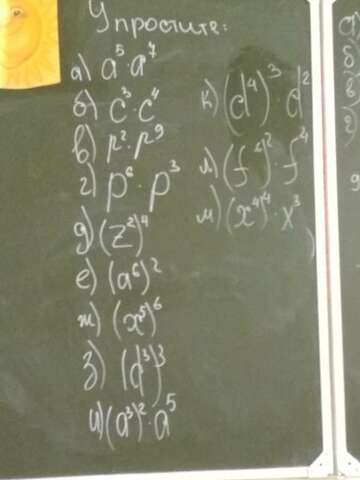 Упростите:
а) a⁵·a⁷
б) c³·c⁴
в) p²·p⁹
г) p⁶·p³
д) (z²)⁴
е) (a⁶)²
ж) (x⁵)⁶
з) (d³)³
и) (a³)²·a⁵
к) (d⁴)³·d²
л) (f⁴)²·f⁴
м) (x⁴)⁴·x³
а)
б
в
г)